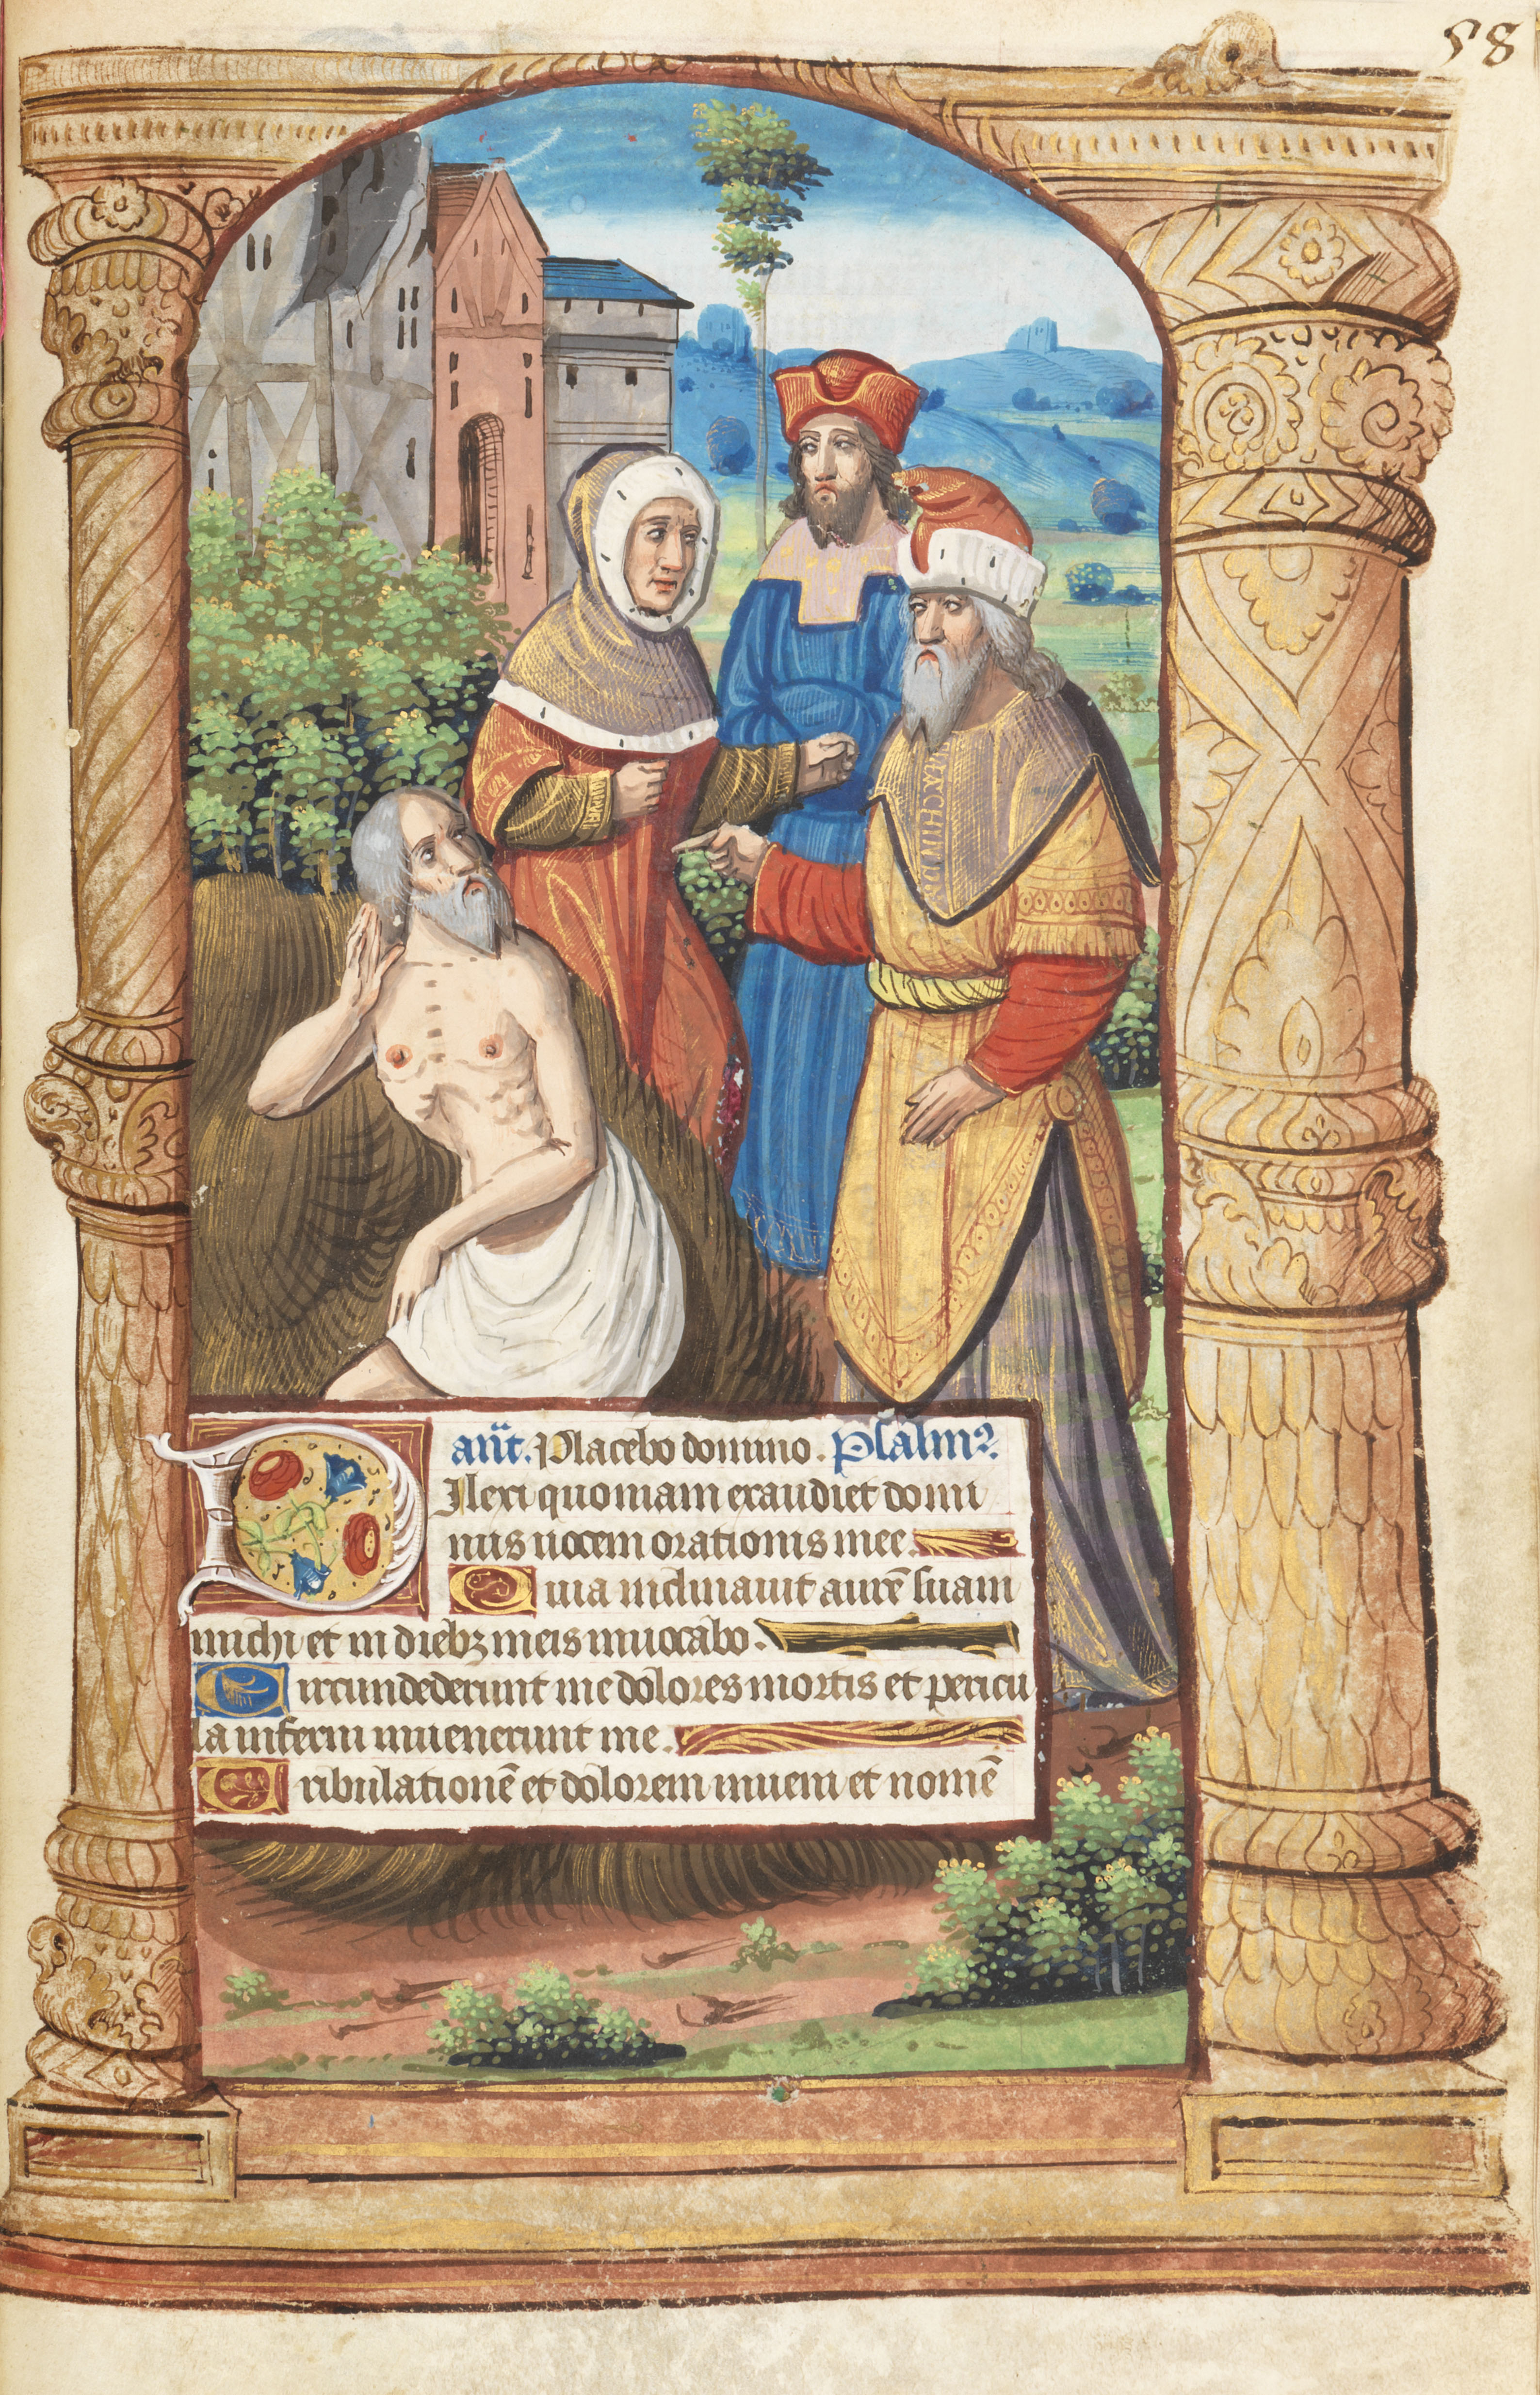 58
añt. Placebo domino. Psalm⁹.
Dilexi quoniam exaudiet domi
nus uocem orationis mee.
Quia inclinauit aurē suam
michi et in diebꝫ meis inuocabo.
Circundederunt me dolores mortis et pericu
la inferni inuenerunt me.
Tribulationē et dolorem inueni et nomē